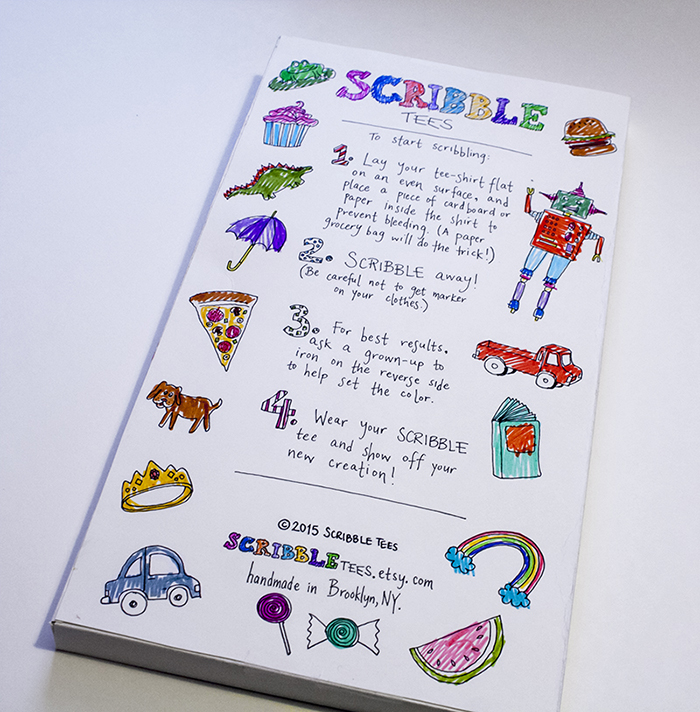 SCRIBBLE
TEES
To start scribbling:
1. Lay your tee-shirt flat
on an even surface, and
place a piece of cardboard or
paper inside the shirt to
prevent bleeding. (A paper
grocery bag will do the trick!)
2. SCRIBBLE away!
(Be careful not to get marker
on your clothes.)
3. For best results,
ask a grown-up to
iron on the reverse side
to help set the color.
4. Wear your SCRIBBLE
tee and show off your
new creation!
©2015 SCRIBBLE TEES
SCRIBBLETEES.etsy.com
handmade in Brooklyn, NY.